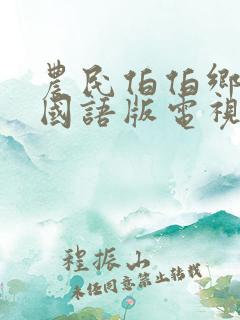 農民伯伯鄉
國語版電視
程振山
未任同意禁止转载